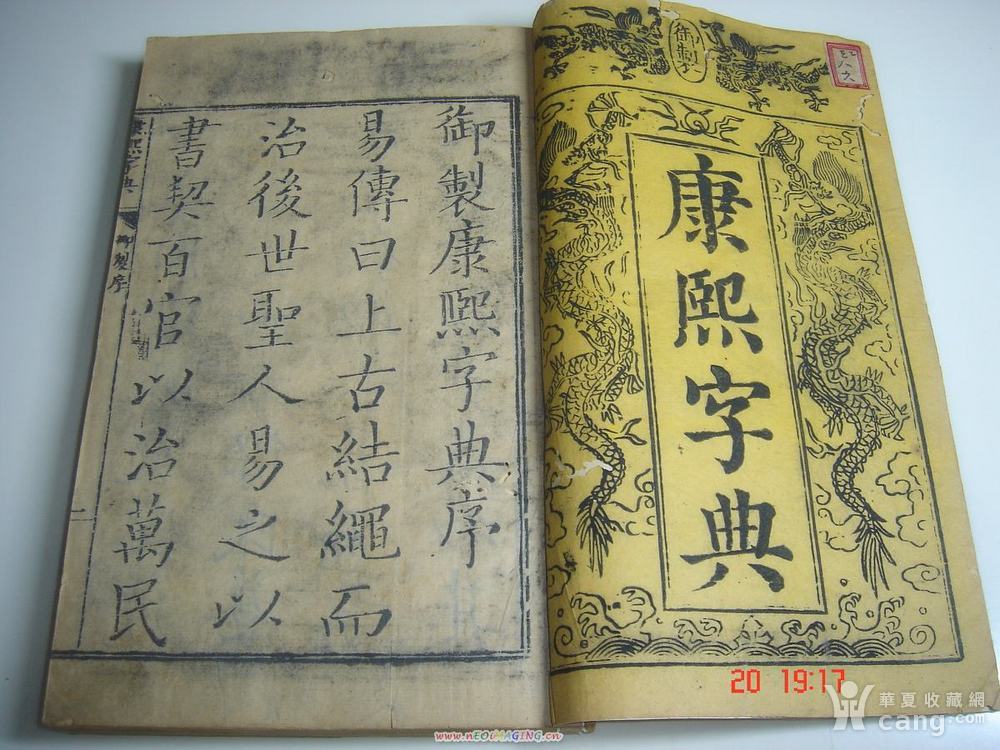 御製
康熙字典
御製康熙字典序
易傳曰上古結繩而
治後世聖人易之以
書契百官以治萬民
康熙字典
御製序
一
20 19:17
華夏收藏網
cang.com
www.nEOiMAGING.cn